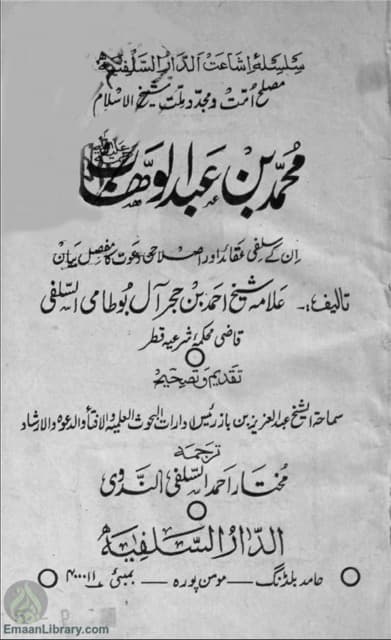 سلسلۂ اشاعت الدار السلفیہ
مصلح امت و مجدد ملت شیخ الاسلام
محمد بن عبد الوہاب
ان کے سلفی عقائد اور اصلاحی دعوت کا مفصل بیان
تالیف:۔ علامہ شیخ احمد بن حجر آل بوطامی السلفی
قاضی محکمۂ شرعیہ قطر
تقدیم و تصحیح
سماحۃ الشیخ عبد العزیز بن باز رئیس ادارات البحوث العلمیۃ والافتاء والدعوہ والارشاد
ترجمہ
مختار احمد السلفی الندوی
الدار السلفیہ
حامد بلڈنگ — مومن پورہ — بمبئی ۴۰۰۰۱۱
EmaanLibrary.com